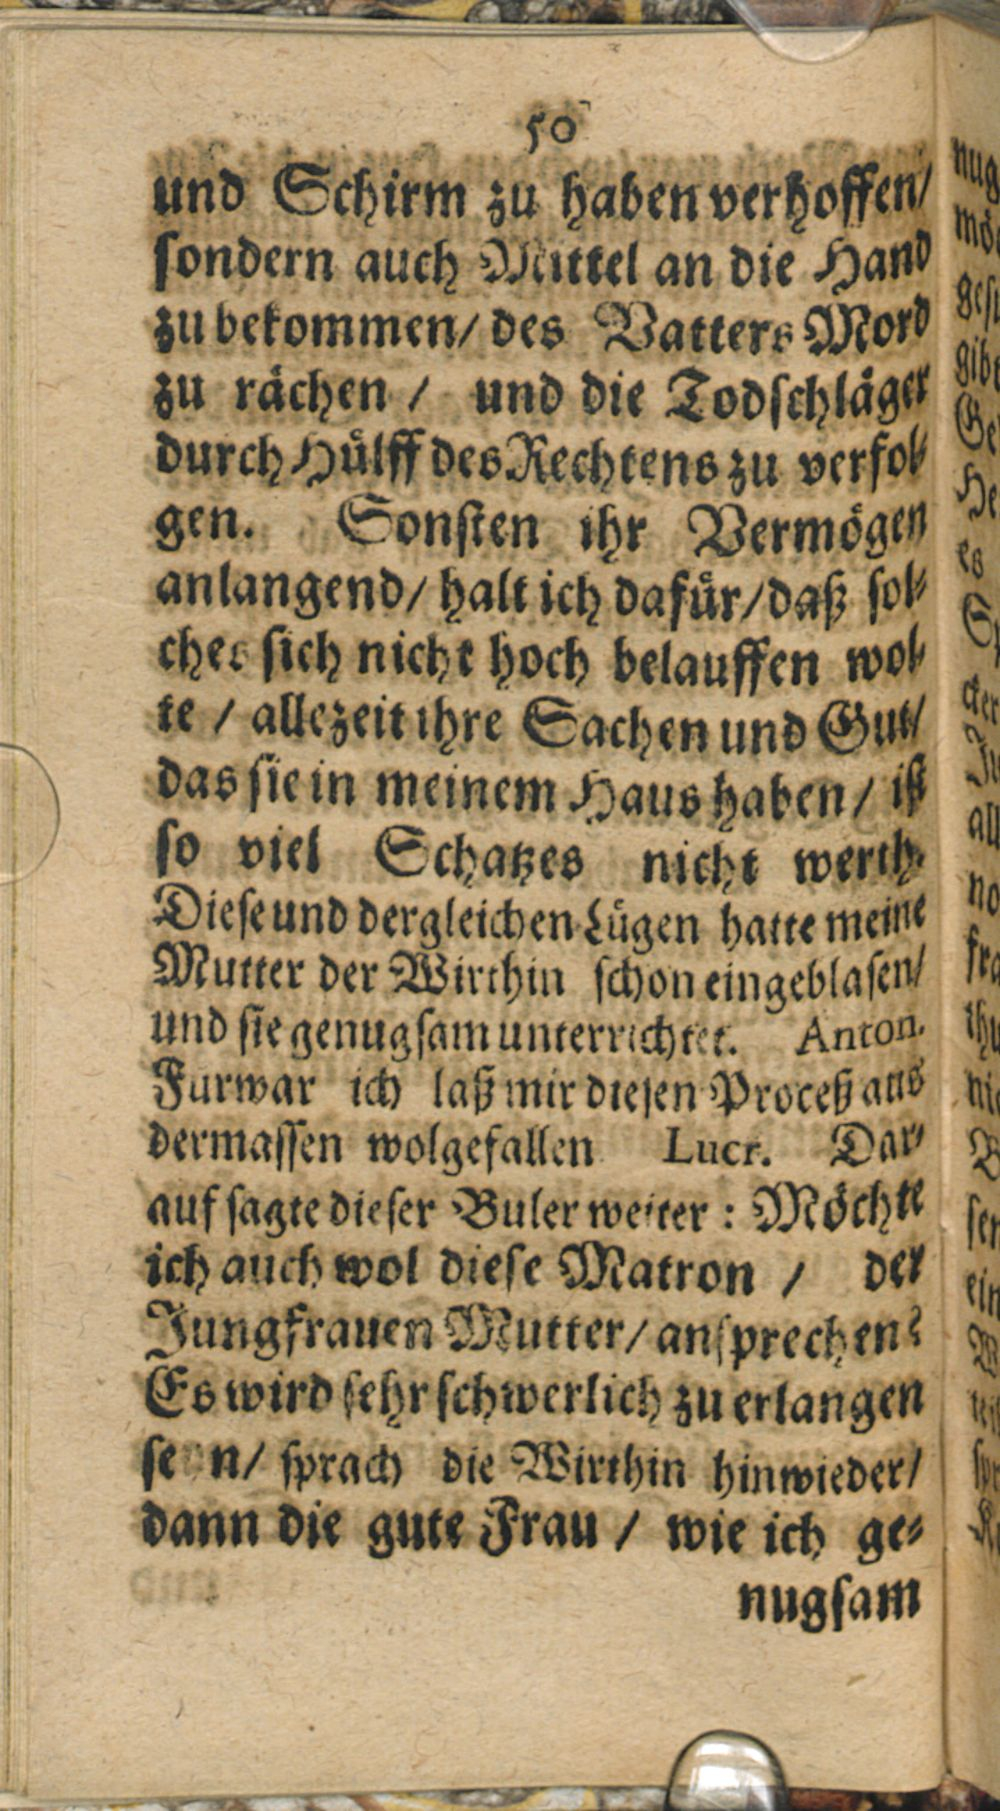 50
und Schirm zu haben verhoffen/
ſondern auch Mittel an die Hand
zu bekommen/ des Vatters Mord
zu rächen / und die Todſchläger
durch Hülff des Rechtens zu verfol⸗
gen. Sonſten ihr Vermögen
anlangend/ halt ich dafür/ daß ſol⸗
ches ſich nicht hoch belauffen wol⸗
te / allezeit ihre Sachen und Gut/
das ſie in meinem Haus haben/ iſt
ſo viel Schatzes nicht werth.
Dieſe und dergleichen Lügen hatte meine
Mutter der Wirthin ſchon eingeblaſen/
und ſie genugſam unterrichtet. Anton.
Furwar ich laß mir dieſen Proceß aus
dermaſſen wolgefallen Lucr. Dar⸗
auf ſagte dieſer Buler weiter : Möchte
ich auch wol dieſe Matron / der
Jungfrauen Mutter/ anſprechen?
Es wird ſehr ſchwerlich zu erlangen
ſeyn/ ſprach die Wirthin hinwieder/
dann die gute Frau / wie ich ge⸗
nugſam